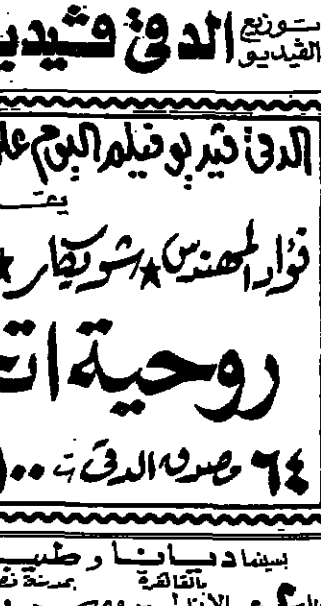 توزيع الفيديو الدقى فيديو
الدقى فيديو فيلم اليوم على
يقـ
فؤاد المهندس ★ شويكار ★
روحية ات
٦٤ مصدق الدقى ت ١٠٠
بسينما ديانا و طيبـ
بالقاهرة بمدينة نصـ